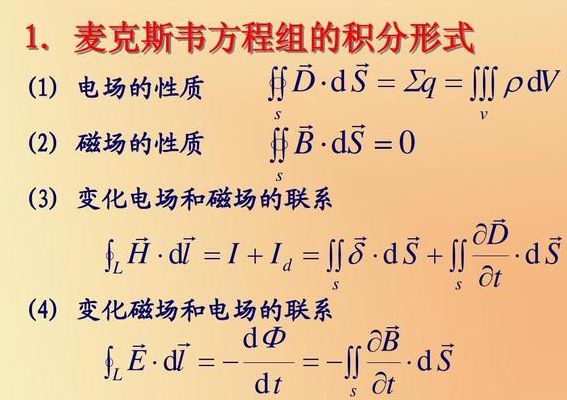 1. 麦克斯韦方程组的积分形式
(1) 电场的性质 ∯ₛ D⃗·dS⃗ = Σq = ∭ᵥ ρdV
(2) 磁场的性质 ∯ₛ B⃗·dS⃗ = 0
(3) 变化电场和磁场的联系
∮_L H⃗·dl⃗ = I + I_d = ∬ₛ δ⃗·dS⃗ + ∬ₛ ∂D⃗/∂t·dS⃗
(4) 变化磁场和电场的联系
∮_L E⃗·dl⃗ = −dΦ/dt = −∬ₛ ∂B⃗/∂t·dS⃗